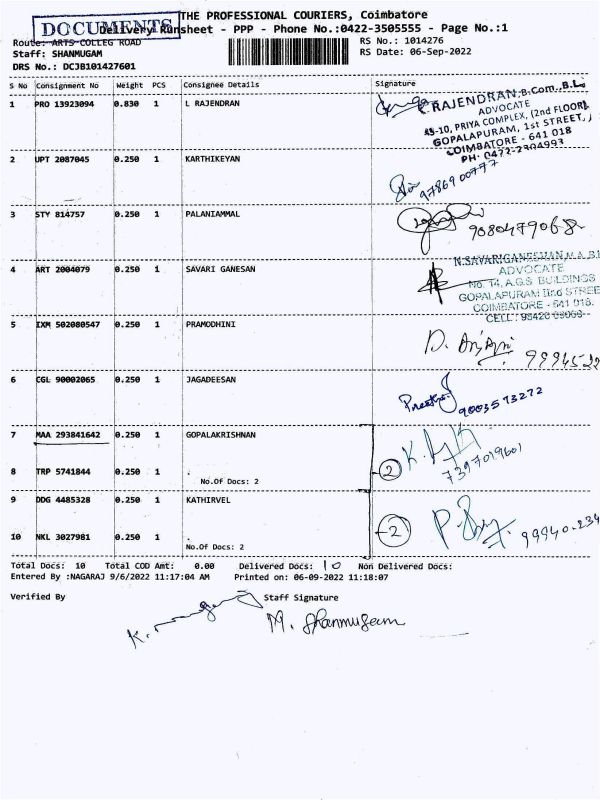 DOCUMENTS
THE PROFESSIONAL COURIERS, Coimbatore
Delivery Runsheet - PPP - Phone No.:0422-3505555 - Page No.:1
Route: ARTS COLLEG ROAD
RS No.: 1014276
Staff: SHANMUGAM
RS Date: 06-Sep-2022
DRS No.: DCJB101427601
S No Consignment No Weight PCS Consignee Details Signature
1 PRO 13923094 0.830 1 L RAJENDRAN
L.RAJENDRAN,B.Com.,B.L.,
ADVOCATE
45-10, PRIYA COMPLEX, (2nd FLOOR)
GOPALAPURAM, 1st STREET,
COIMBATORE - 641 018
PH: 0422-2304993
2 UPT 2087045 0.250 1 KARTHIKEYAN
9786900777
3 STY 814757 0.250 1 PALANIAMMAL
9080479068
4 ART 2004079 0.250 1 SAVARI GANESAN
N.SAVARIGANESHAN,M.A.,B.L
ADVOCATE
No. 14, A.G.S. BUILDINGS
GOPALAPURAM IInd STREE
COIMBATORE - 641 018.
CELL:
5 IXM 502080547 0.250 1 PRAMODHINI
D.
6 CGL 90002065 0.250 1 JAGADEESAN
9003573272
7 MAA 293841642 0.250 1 GOPALAKRISHNAN
2
7397019601
8 TRP 5741844 0.250 1 .
No.Of Docs: 2
9 DDG 4485328 0.250 1 KATHIRVEL
2
99940-234
10 NKL 3027981 0.250 1 .
No.Of Docs: 2
Total Docs: 10 Total COD Amt: 0.00 Delivered Docs: 10 Non Delivered Docs:
Entered By :NAGARAJ 9/6/2022 11:17:04 AM Printed on: 06-09-2022 11:18:07
Verified By Staff Signature
M. Shanmugam